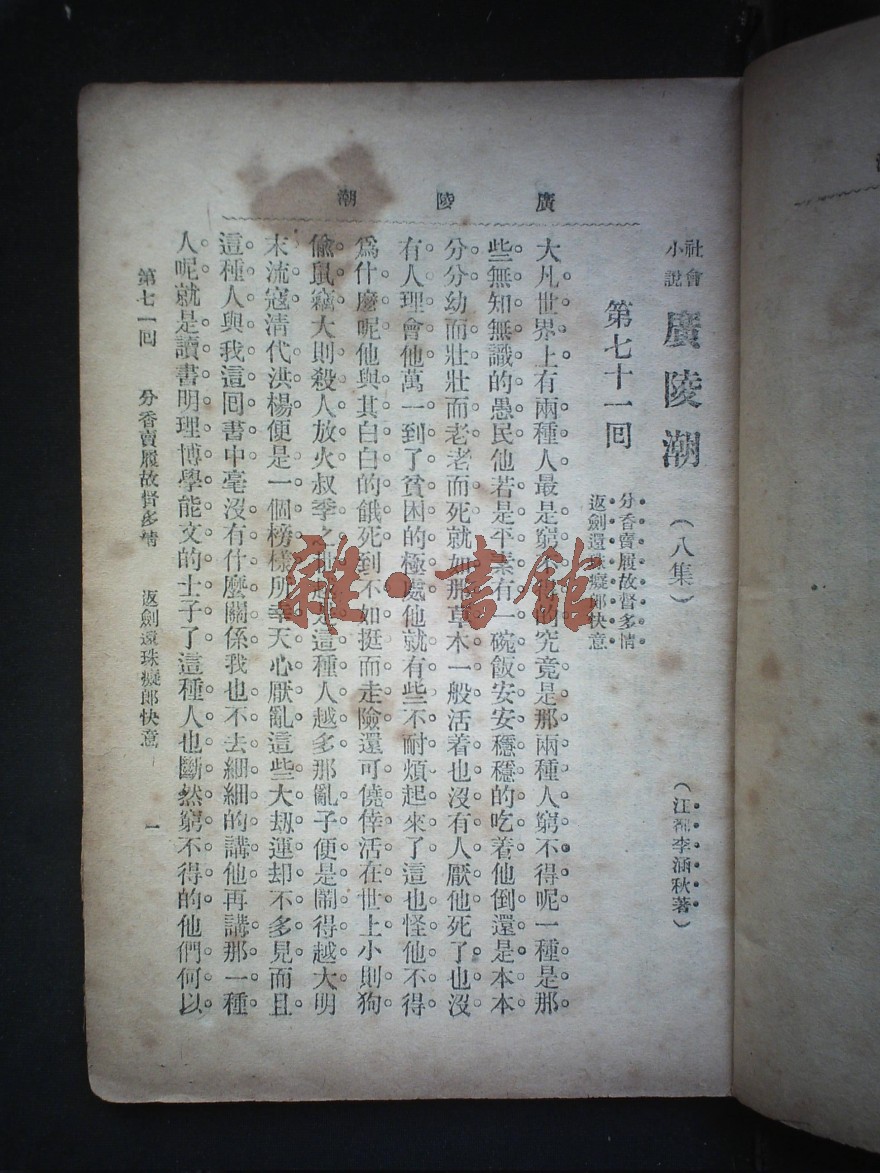 廣陵潮
社會小說 廣陵潮 (八集) (江都李涵秋著)
第七十一回 分香賣履故督多情
返劍還珠癡郎快意
大凡世界上有兩種人最是窮不得的究竟是那兩種人窮不得呢一種是那
些無知無識的愚民他若是平素有一碗飯安安穩穩的吃着他倒還是本本
分分幼而壯壯而老老而死就如那草木一般活着也沒有人厭他死了也沒
有人理會他萬一到了貧困的極處他就有些不耐煩起來了這也怪他不得
爲什麼呢他與其白白的餓死到不如挺而走險還可僥倖活在世上小則狗
偷鼠竊大則殺人放火叔季之世這種人越多那亂子便是鬧得越大明
末流寇清代洪楊便是一個榜樣所幸天心厭亂這些大刼運却不多見而且
這種人與我這回書中毫沒有什麼關係我也不去細細的講他再講那一種
人呢就是讀書明理博學能文的士子了這種人也斷然窮不得的他們何以
第七一回 分香賣履故督多情 返劍還珠癡郎快意 一
雜·書館